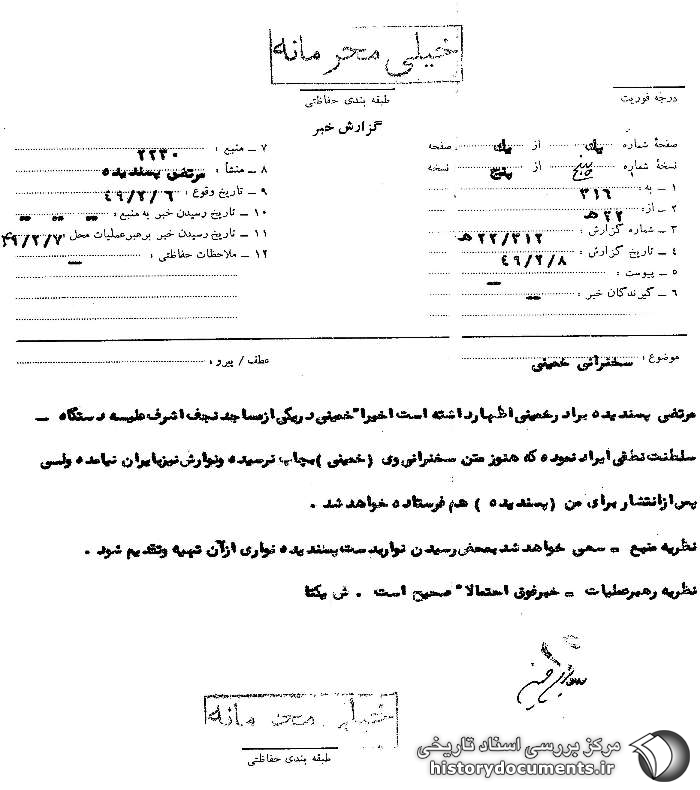 خیلی محرمانه
طبقه بندی حفاظتی
درجه فوریت
گزارش خبر
صفحهٔ شماره یک از یک صفحه
نسخهٔ شماره پنج از پنج نسخه
۱ ـ به : ۳۱۶
۲ ـ از: ۲۲ هـ
۳ ـ شماره گزارش : ۲۲/۳۱۲ هـ
۴ ـ تاریخ گزارش : ۴۹/۲/۸
۵ ـ پیوست : ـ
۶ ـ گیرندگان خبر : ـ
۷ ـ منبع : ۲۲۳۰
۸ ـ منشأ : مرتضی پسندیده
۹ ـ تاریخ وقوع : ۴۹/۲/۶
۱۰ ـ تاریخ رسیدن خبر به منبع : ـ ـ ـ
۱۱ ـ تاریخ رسیدن خبر برهبر عملیات محل : ۴۹/۲/۷
۱۲ ـ ملاحظات حفاظتی : ـ
موضوع : سخنرانی خمینی
عطف / پیرو :
مرتضی پسندیده برادر خمینی اظهار داشته است اخیراً خمینی در یکی از مساجد نجف اشرف علیه دستگاه ـ
سلطنت نطقی ایراد نموده که هنوز متن سخنرانی وی (خمینی) بچاپ نرسیده و نوارش نیز بایران نیامده ولسی
پس از انتشار برای من (پسندیده) هم فرستاده خواهد شد .
نظریه منبع ـ سعی خواهد شد بمحض رسیدن نوار بدست پسندیده نواری از آن تهیه وتقدیم شود .
نظریه رهبر عملیات ـ خبر فوق احتمالاً صحیح است . ش یکتا
خیلی محرمانه
طبقه بندی حفاظتی
مرکز بررسی اسناد تاریخی
historydocuments.ir